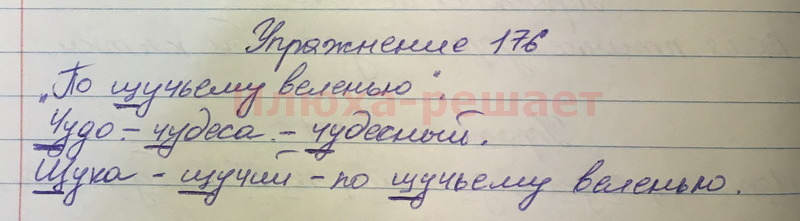 Упражнение 176
„По щучьему веленью".
илюха-решает
Чудо – чудеса – чудесный.
Щука – щучий – по щучьему веленью.